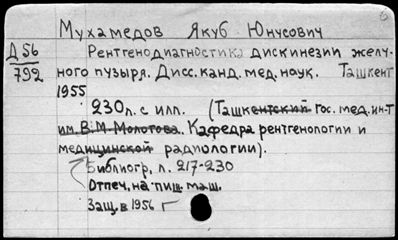 Мухамедов Якуб Юнусович
Д 56
792
Рентгенодиагностика дискинезии желч-
ного пузыря. Дисс. канд. мед. наук. Ташкент
1955
230 л. с илл. (Ташкентский гос. мед. ин-т
им. В. М. Молотова. Кафедра рентгенологии и
медицинской радиологии).
Библиогр. л. 217-230
Отпеч. на пиш. маш.
Защ. в 1956 г